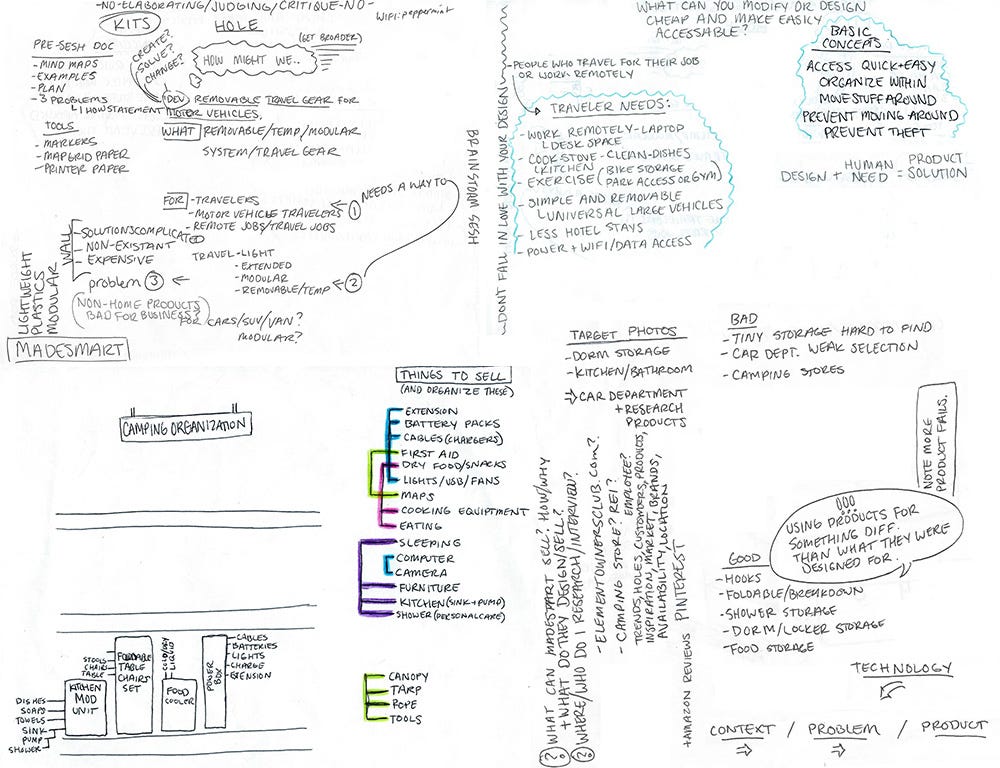 -NO-ELABORATING/JUDGING/CRITIQUE-NO-
WIFI: peppermint
KITS
HOLE
(GET BROADER)
PRE-SESH DOC
- MIND MAPS
- EXAMPLES
- PLAN
- 3 PROBLEMS
↳ 1 HOW STATEMENT
CREATE?
SOLVE?
CHANGE?
HOW MIGHT WE..
DEV. REMOVABLE TRAVEL GEAR FOR
MOTOR VEHICLES,
WHAT REMOVABLE/TEMP/MODULAR
SYSTEM/TRAVEL GEAR
TOOLS
- MARKERS
- MAPGRID PAPER
- PRINTER PAPER
FOR - TRAVELERS
- MOTOR VEHICLE TRAVELERS ← 1 NEEDS A WAY TO
- REMOTE JOBS/TRAVEL JOBS
WALL
- SOLUTIONS COMPLICATED
- NON-EXISTANT
- EXPENSIVE
TRAVEL-LIGHT
- EXTENDED
- MODULAR
- REMOVABLE/TEMP ← 2
problem 3 ←
(NON-HOME PRODUCTS
BAD FOR BUSINESS?)
FOR CARS/SUV/VAN?
MODULAR?
LIGHTWEIGHT
PLASTICS
MODULAR
MADESMART
BRAIN STORM SESH
-DONT FALL IN LOVE WITH YOUR DESIGN
WHAT CAN YOU MODIFY OR DESIGN
CHEAP AND MAKE EASILY
ACCESSABLE?
-PEOPLE WHO TRAVEL FOR THEIR JOB
OR WORK REMOTELY
TRAVELER NEEDS:
- WORK REMOTELY-LAPTOP
↳ DESK SPACE
- COOKSTOVE-CLEAN-DISHES
↳ KITCHEN
- EXERCISE (BIKE STORAGE
PARK ACCESS OR GYM)
- SIMPLE AND REMOVABLE
↳ UNIVERSAL LARGE VEHICLES
- LESS HOTEL STAYS
- POWER + WIFI/DATA ACCESS
BASIC
CONCEPTS:
ACCESS QUICK+EASY
ORGANIZE WITHIN
MOVE STUFF AROUND
PREVENT MOVING AROUND
PREVENT THEFT
HUMAN PRODUCT
DESIGN + NEED = SOLUTION
CAMPING ORGANIZATION
STOOLS
CHAIRS
TABLE
FOLDABLE
TABLE
CHAIRS
SET
COLD/DRY
LIQUID
FOOD
COOLER
POWER
BOX
CABLES
BATTERIES
LIGHTS
CHARGE
EXENSION
KITCHEN
MOD
UNIT
DISHES
SOAPS
TOWELS
SINK
PUMP
SHOWER
THINGS TO SELL
(AND ORGANIZE THESE)
EXTENSION
BATTERY PACKS
CABLES (CHARGERS)
FIRST AID
DRY FOOD/SNACKS
LIGHTS/USB/FANS
MAPS
COOKING EQUIPTMENT
EATING
SLEEPING
COMPUTER
CAMERA
FURNITURE
KITCHEN (SINK+PUMP)
SHOWER (PERSONAL CARE)
CANOPY
TARP
ROPE
TOOLS
TARGET PHOTOS
- DORM STORAGE
- KITCHEN/BATHROOM
⇒ CAR DEPARTMENT
+ RESEARCH
PRODUCTS
? WHAT CAN MADESMART SELL? HOW/WHY
+ WHAT DO THEY DESIGN/SELL?
? WHERE/WHO DO I RESEARCH/INTERVIEW?
- ELEMENTOWNERSCLUB.com?
- CAMPING STORE? REI?
EMPLOYEE?
TRENDS, HOLES, CUSTOMERS, PRODUCTS,
INSPIRATION, MARKET, BRANDS,
AVAILABILITY, LOCATION
+AMAZON REVIEWS PINTEREST
BAD
- TINY STORAGE HARD TO FIND
- CAR DEPT. WEAK SELECTION
- CAMPING STORES
NOTE MORE
PRODUCT FAILS.
USING PRODUCTS FOR
SOMETHING DIFF.
THAN WHAT THEY WERE
DESIGNED FOR.
GOOD
- HOOKS
- FOLDABLE/BREAKDOWN
- SHOWER STORAGE
- DORM/LOCKER STORAGE
- FOOD STORAGE
TECHNOLOGY
CONTEXT / PROBLEM / PRODUCT
⇒ ⇒